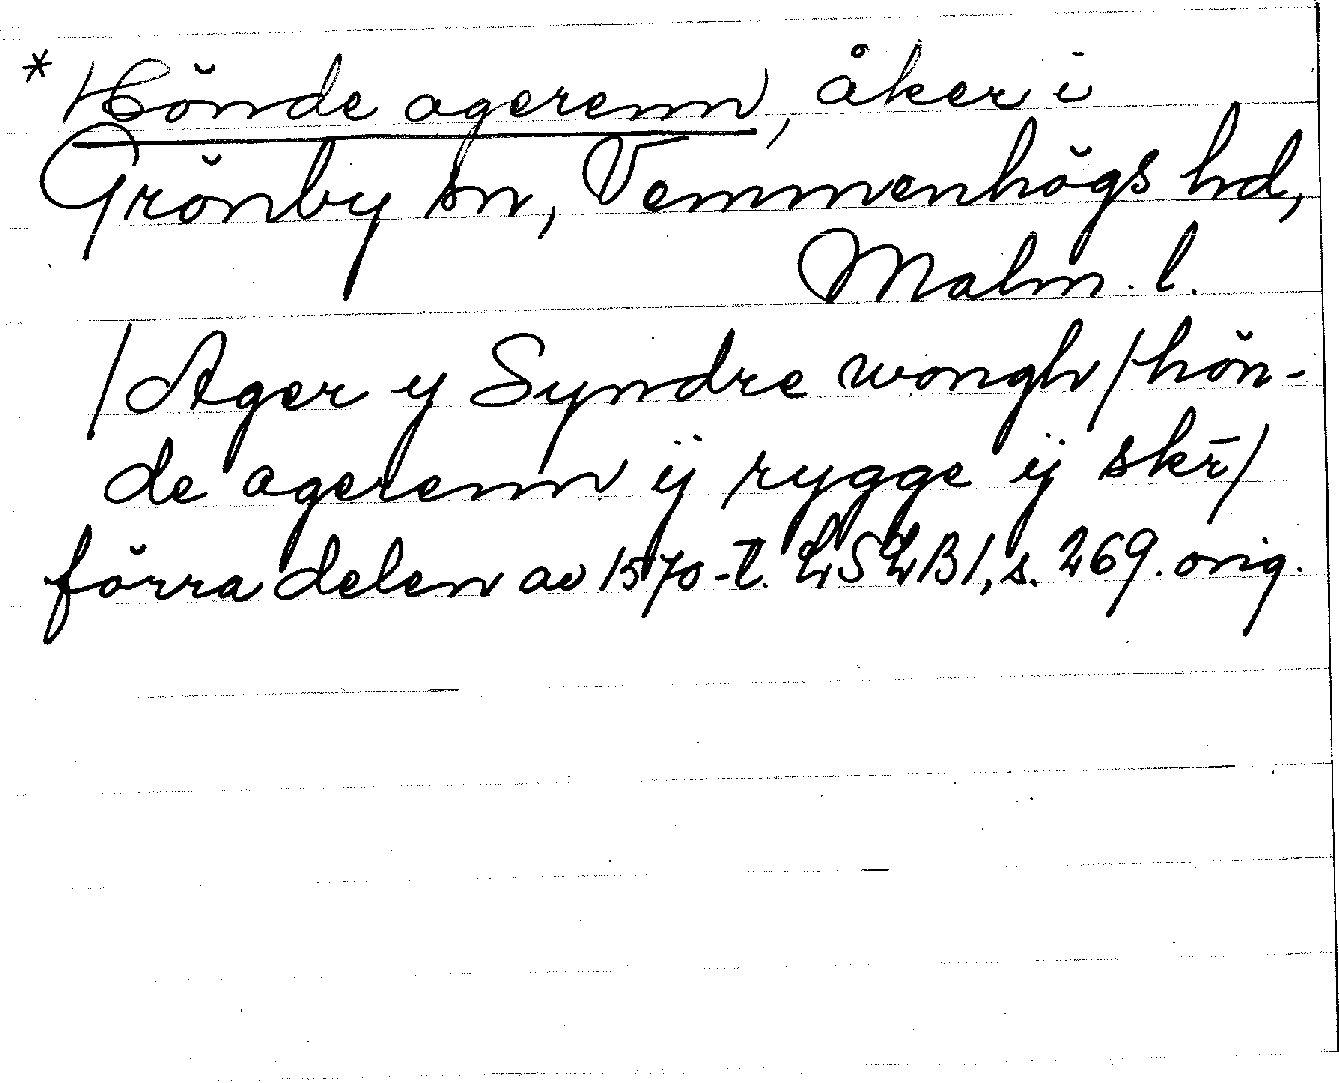 * Hönde agerenn, åker i
Grönby sn, Vemmenhögs hd,
Malm. l.
/Ager y Syndre wongh/hön-
de agerenn ij rygge ij skr̄/
förra delen av 1570-t. LSLB 1, s. 269. orig.